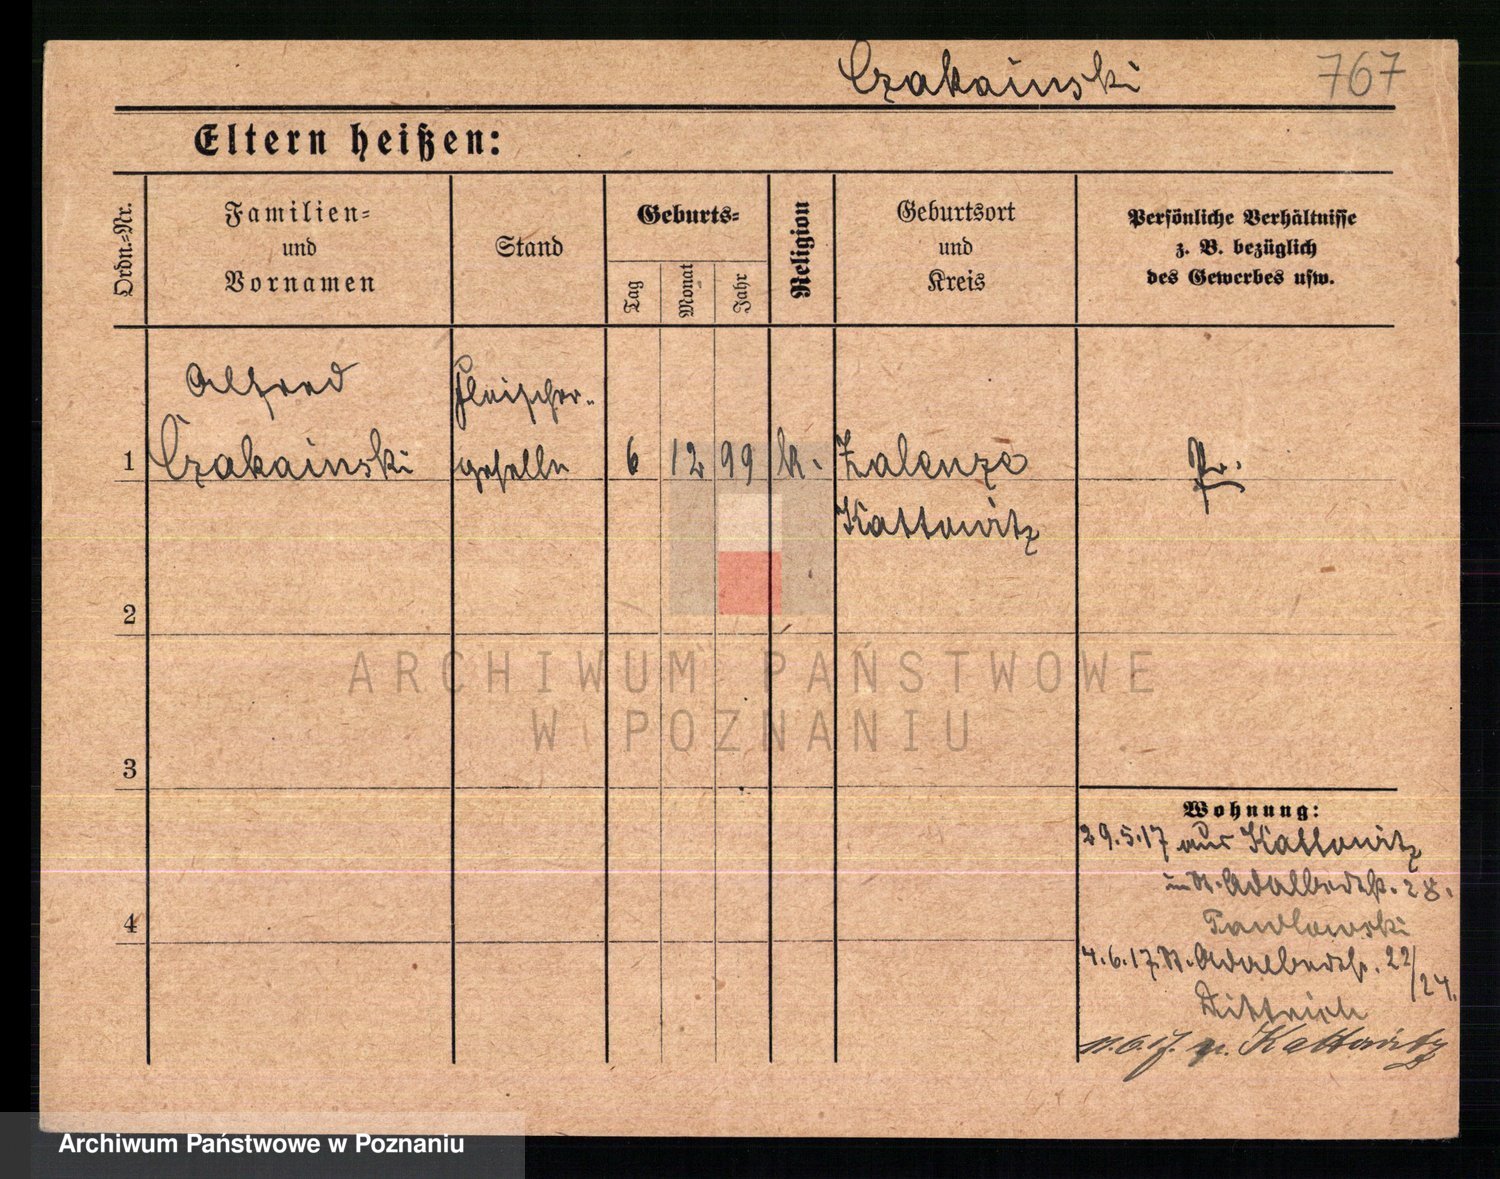 Czakainski 767
Eltern heißen:
Ordn.-Nr.
Familien-
und
Vornamen
Stand
Geburts-
Tag
Monat
Jahr
Religion
Geburtsort
und
Kreis
Persönliche Verhältnisse
z. B. bezüglich
des Gewerbes usw.
Alfred Fleischer-
1 Czakainski geselle 6 12 99 k. Zalenze Pr.
Kattowitz
2
ARCHIWUM PAŃSTWOWE
W POZNANIU
3
Wohnung:
29.5.17 aus Kattowitz
Adalbertst. 28.
Pawlowski
4
4.6.17. Adalbertst. 22/24.
Dittrich
n. Kattowitz
Archiwum Państwowe w Poznaniu